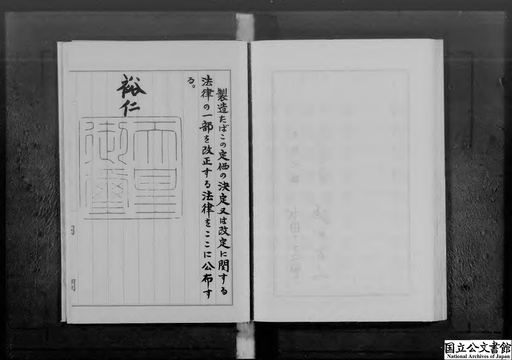 製造たばこの定価の決定又は改定に関する
法律の一部を改正する法律をここに公布す
る。
裕仁
天皇
御璽
国立公文書館
National Archives of Japan